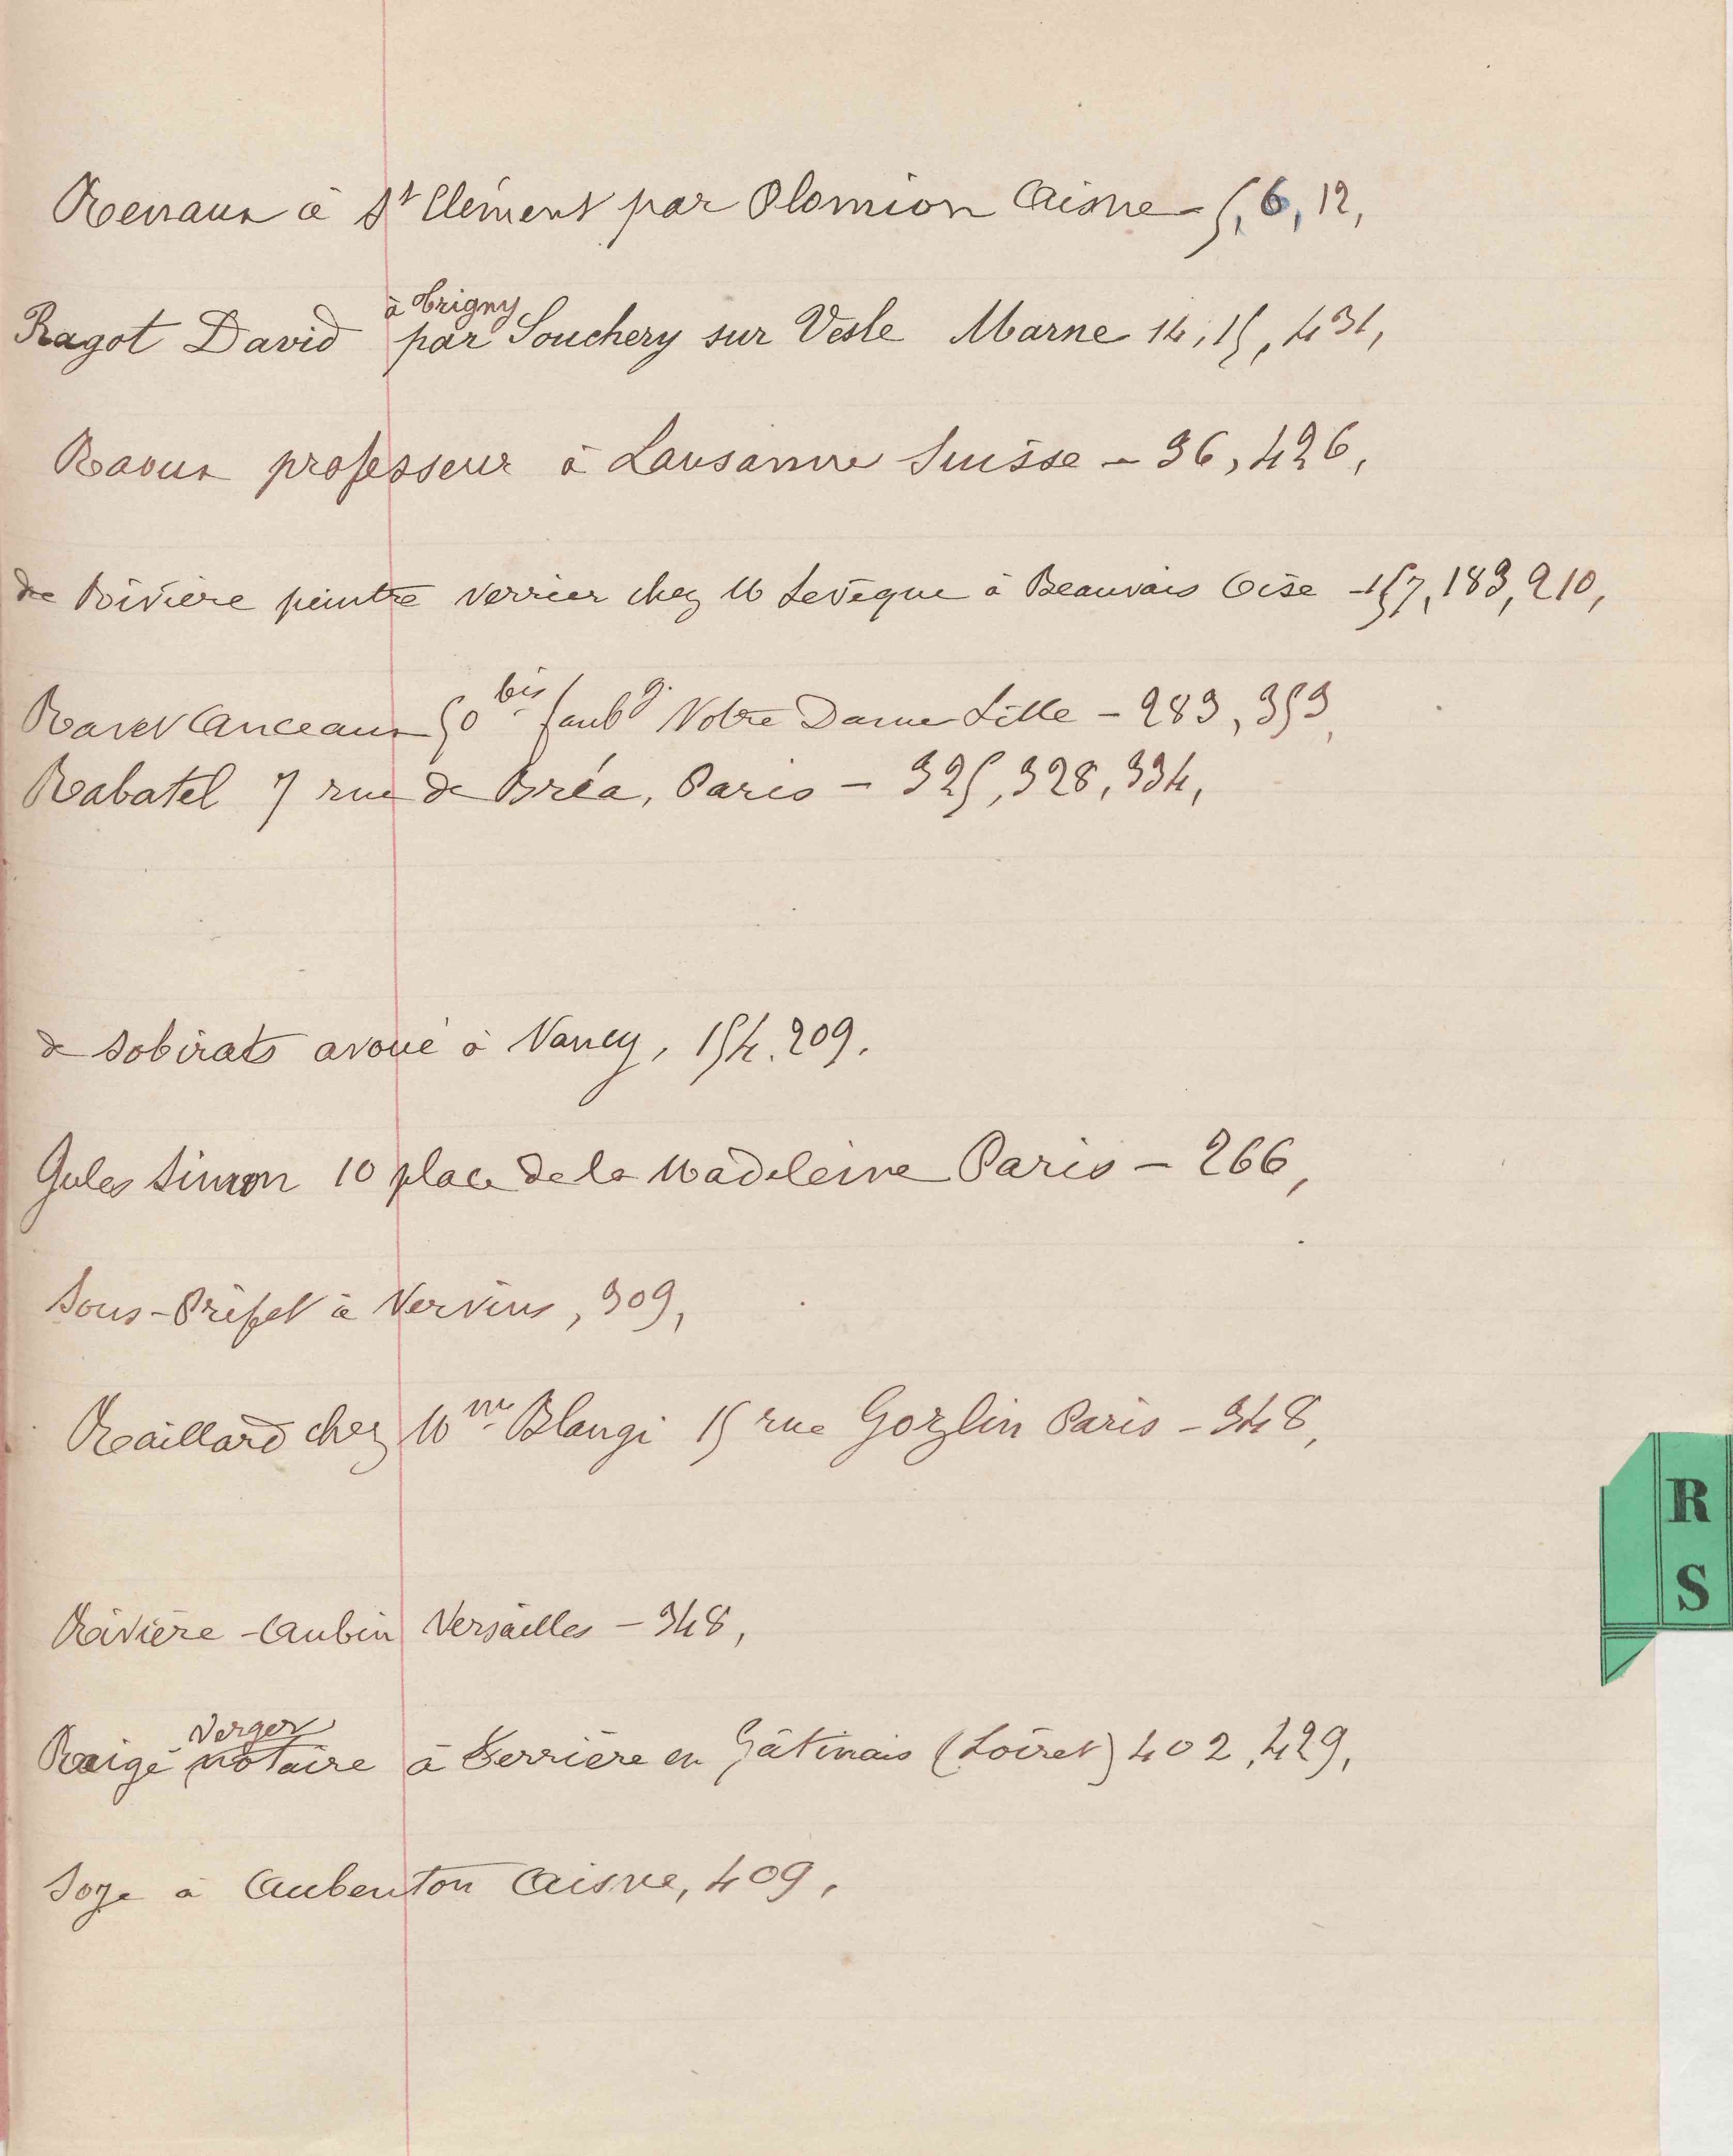 Renaux à St Clément par Plomion Aisne - 5, 6, 12,
à Trigny
Ragot David par Jonchery sur Vesle Marne 14, 15, 431,
Raoux professeur à Lausanne Suisse - 36, 426,
de Rivière peintre verrier chez M Levêque à Beauvais Oise - 157, 183, 210,
Ravet Anceaux 50 bis faubg Notre Dame Lille - 283, 353,
Rabatel 7 rue de Bréa, Paris - 325, 328, 334,
de Sobirats avoué à Nancy, 154. 209.
Jules Simon 10 place de la Madeleine Paris - 266,
Sous-Préfet à Vervins, 309,
Raillard chez Mme Blangi 15 rue Gozlin Paris - 348,
R
S
Rivière-Aubin Versailles - 348,
Verger
Raigé notaire à Ferrière en Gâtinais (Loiret) 402, 429,
Soze à Aubenton Aisne, 409,